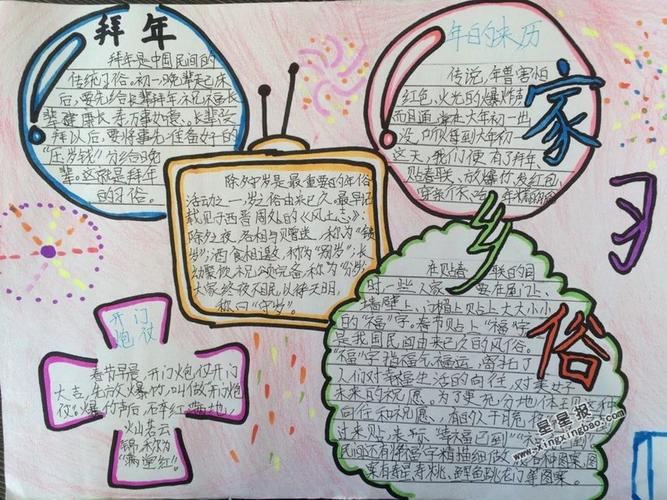 拜年
拜年是中国民间的
传统习俗。初一晚辈起床
后,要先给长辈拜年,祝愿长
辈健康长寿,万事如意。长辈受
拜以后,要将事先准备好的
"压岁钱"分给晚
辈。这就是拜年
的习俗。
年的来历
传说,年兽害怕
红色,火光的爆炸声
而且通常在大年初一出
没,所以每到大年初一
这天,我们便有了拜年,
贴春联、放爆竹、发红包,
家
乡
习
俗
除夕守岁是最重要的年俗
活动之一,守岁之俗由来已久。最早记
载见于西晋周处的《风土志》:
除夕之夜,各相与赠送,称为"馈
岁";酒食相邀,称为"别岁";长
幼聚饮,祝颂完备,称为"分岁";
大家终夜不眠,以待天明,
称曰"守岁"。
开门
炮仗
春节早晨,开门炮仗开门
大吉,先放爆竹,叫做开门炮
仗。爆竹声后,碎红满地,
火山若云
锦,称为
"满堂红"
在贴春联的同
时,一些人家要在屋门上、
墙壁上、门楣上贴上大大小小
的"福"字。春节贴上"福"字
是我国民间由来已久的风俗。
"福"字指福气、福运,寄托了
人们对幸福生活的向往,对美好
未来的祝愿。为了更充分地体现
向往和祝愿,有的人干脆
过来贴,表示"幸福已到"
民间还有将"福"字精描细做成各种图案,图
案有寿星、寿桃、鲤鱼跳龙门等图案。
星星报
www.xingxingbao.com